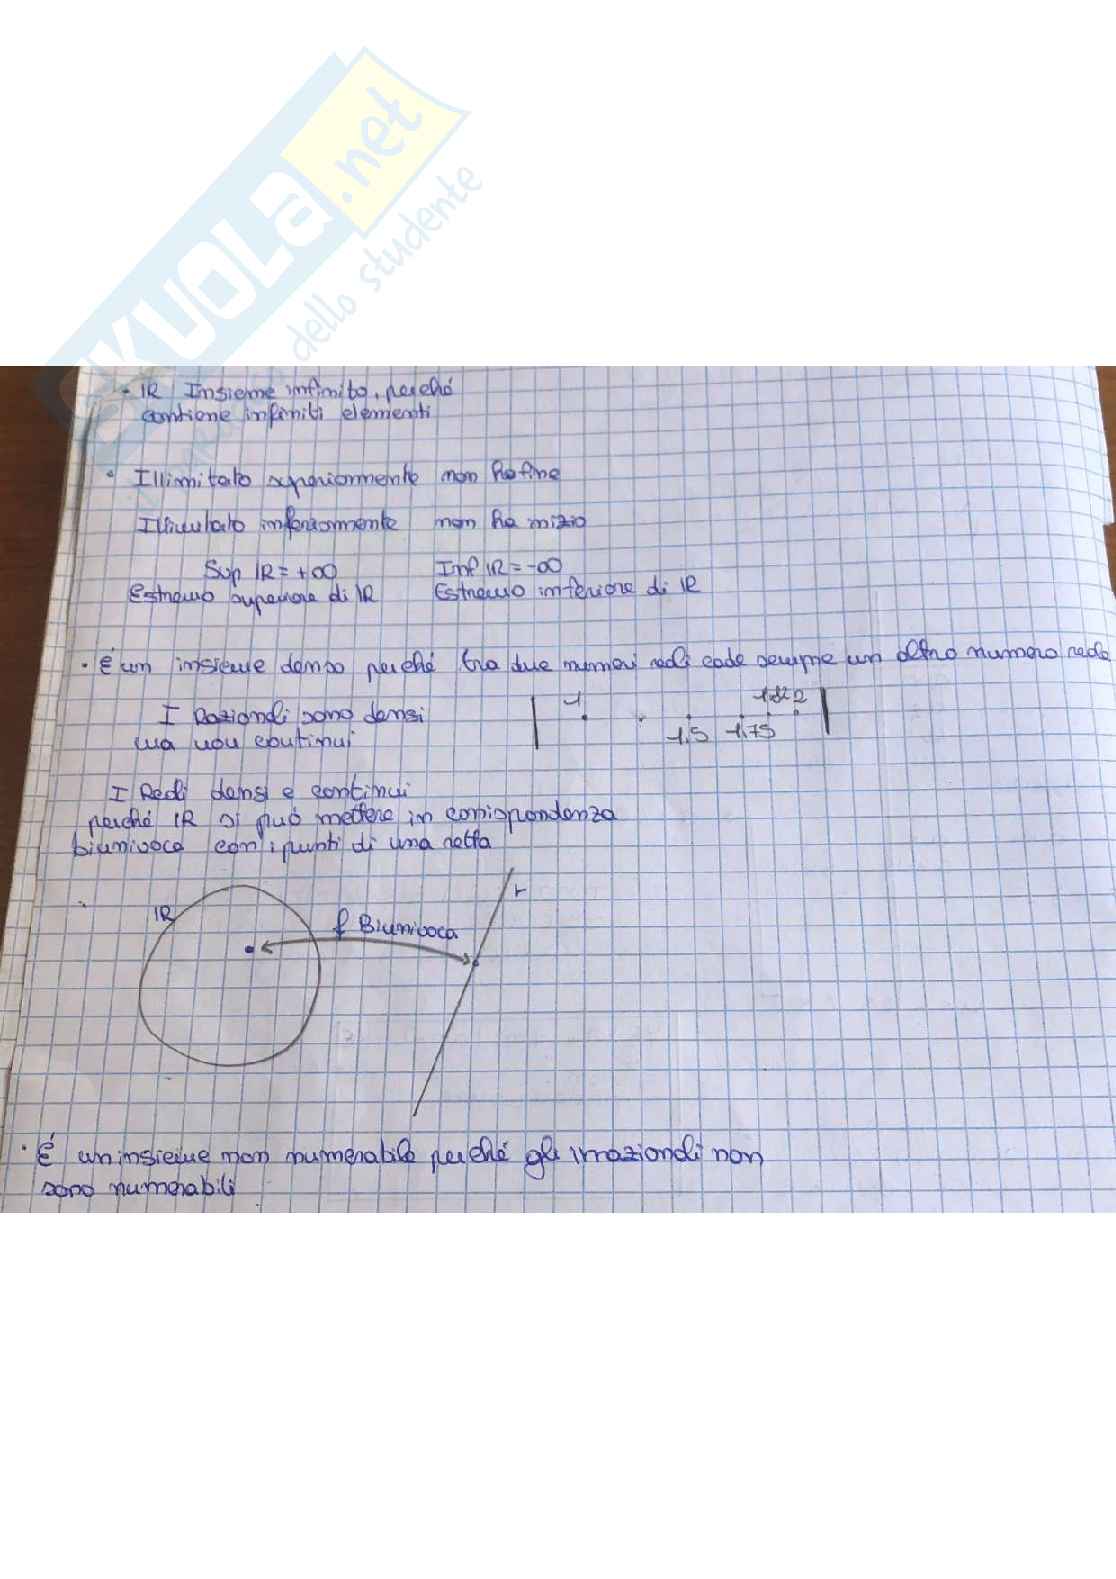 SKUOLA.net
dello studente
• IR Insieme infinito, perché
contiene infiniti elementi
• Illimitato superiormente non ha fine
Illimitato inferiormente non ha inizio
Sup IR = +∞ Inf IR = -∞
Estremo superiore di IR Estremo inferiore di IR
• É un insieme denso perché tra due numeri reali cade sempre un altro numero reale
I Razionali sono densi
ma non continui
1 2
1,5 1,75
I Reali densi e continui
perché IR si può mettere in corrispondenza
biunivoca con i punti di una retta
IR f Biunivoca r
• É un insieme non numerabile perché gli irrazionali non
sono numerabili